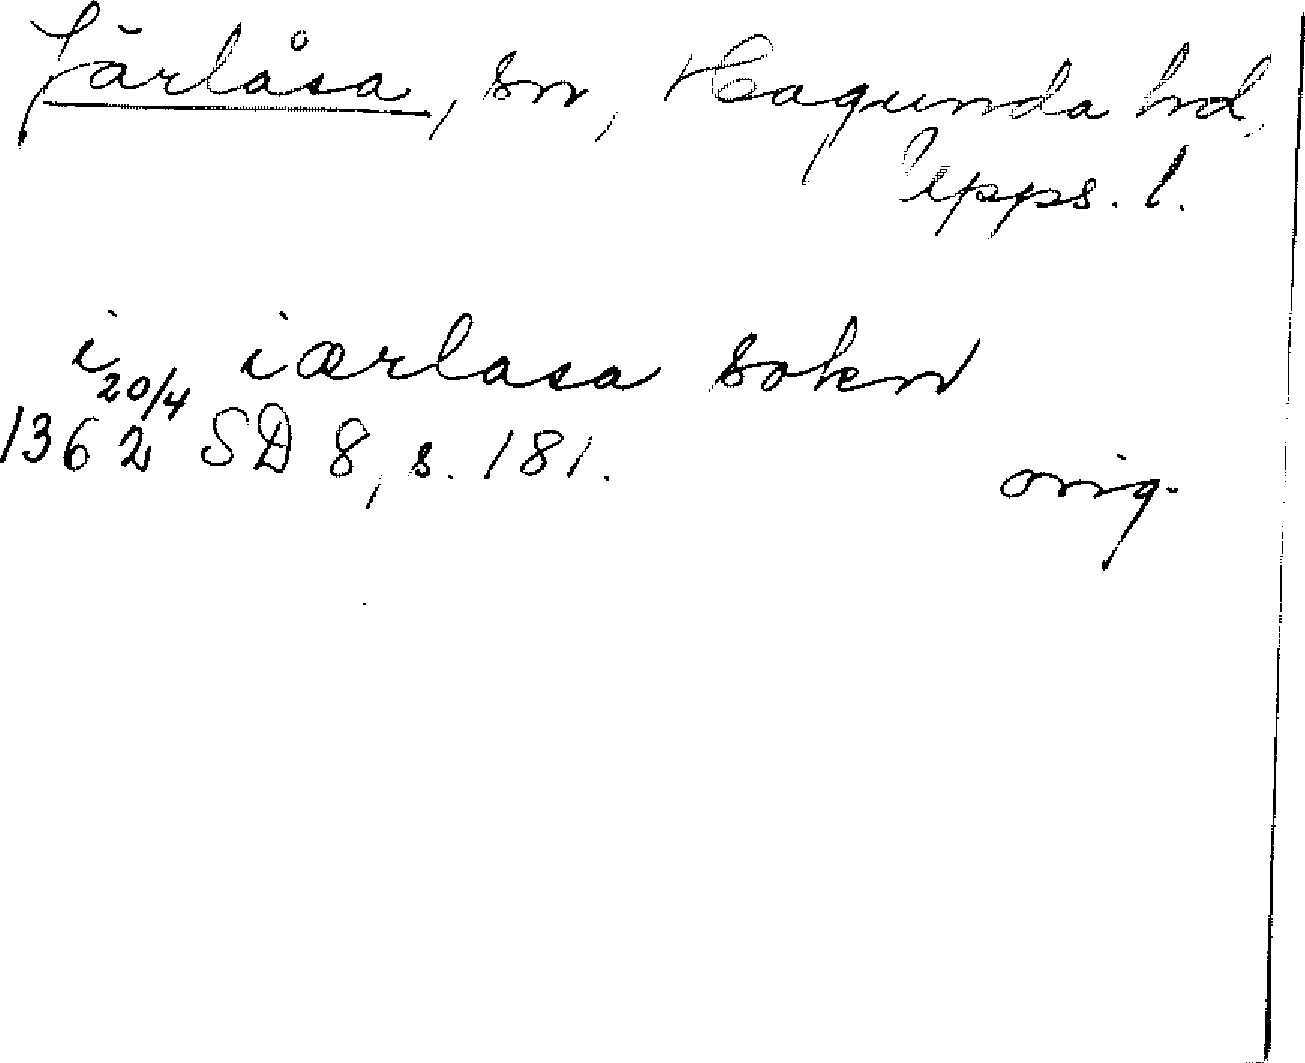 Järlåsa, sn, Hagunda hd,
Upps. l.
i iærlasa sokn
20/4
1362 SD 8, s. 181.
orig.